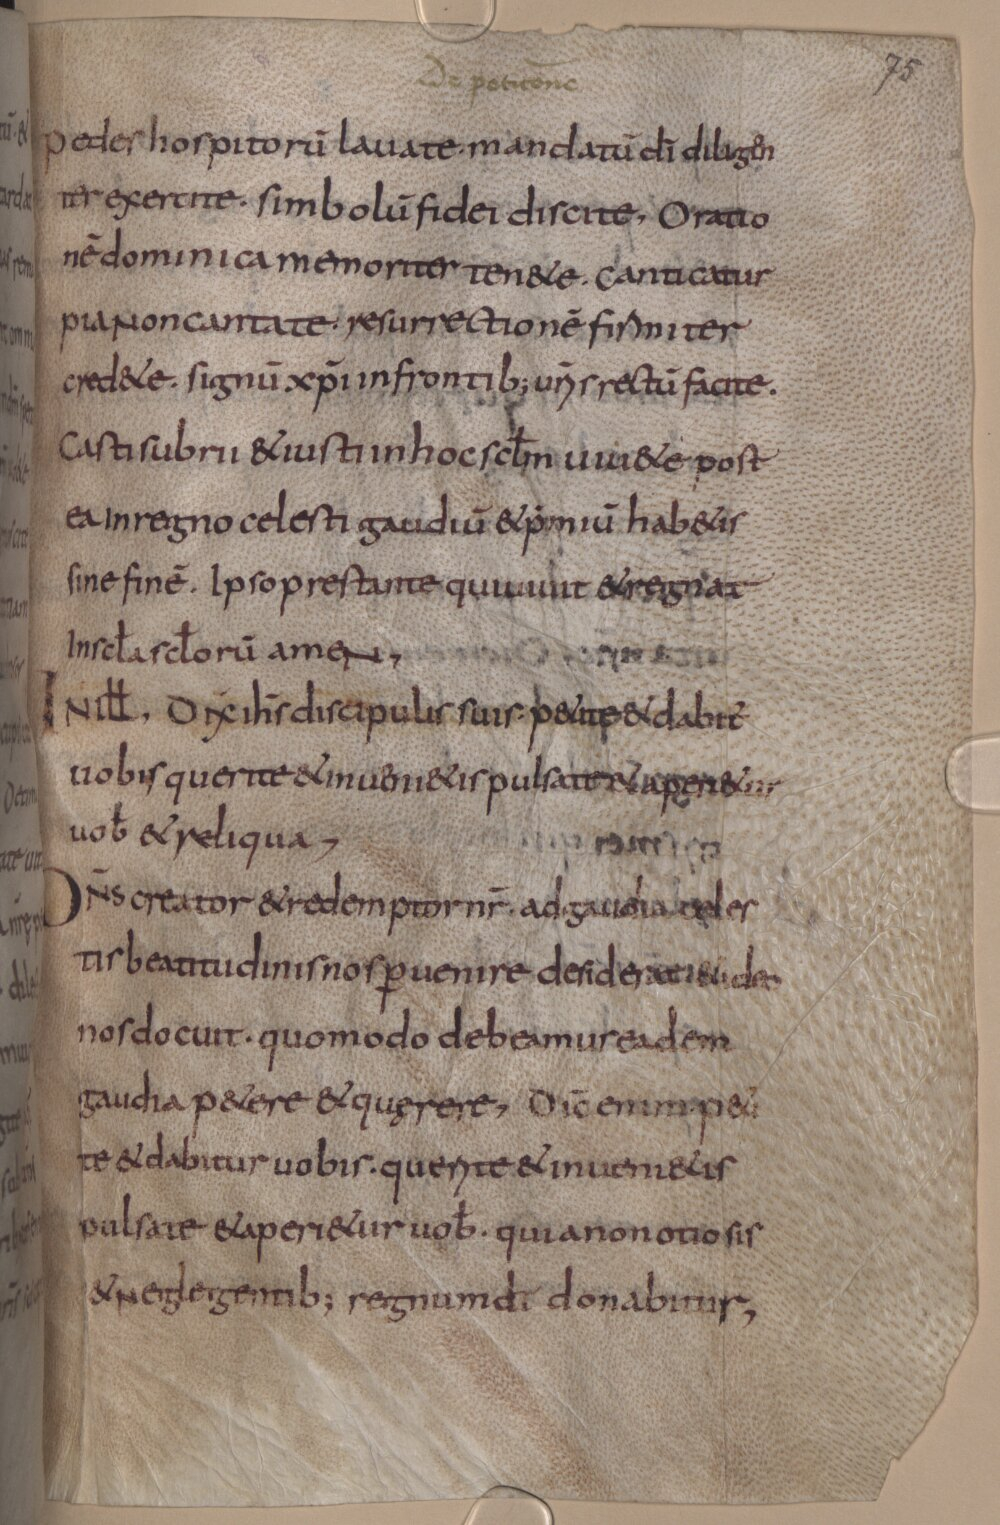 De petitione
75
Pedes hospitorū lauate. mandatū dī diligen
ter exercite. simbolū fidei discite, Oratio
nē dominica memoriter ten&e. canticatur
pia non cantate. resurrectionē firmiter
cred&e. signū xp̄i in frontib; ur̄is rectū facite.
Casti subrii & iusti in hoc sc̄lm uiu&e post
ea in regno celesti gaudiū & p̄miū hab&is
sine finē. Ipso prestante qui uiuit & regnat
In sc̄la sc̄lorū amen,
IN ill̄, Dix̄ ih̄s discipulis suis. p&ite & dabit̄
uobis querite & inueni&is pulsate & aperi&ur
uob̄ & reliqua,
Dn̄s creator & redemptor nr̄. ad gaudia celes
tis beatitudinis nos puenire desiderat
nos docuit. quomodo debeamus eadem
gaudia p&ere & quęrere, Dic̄ enim p&i
te & dabitur uobis. querite & inueni&is
pulsate & aperi&ur uob̄. quia non otiosis
& neglegentib; regnum dī donabitur,